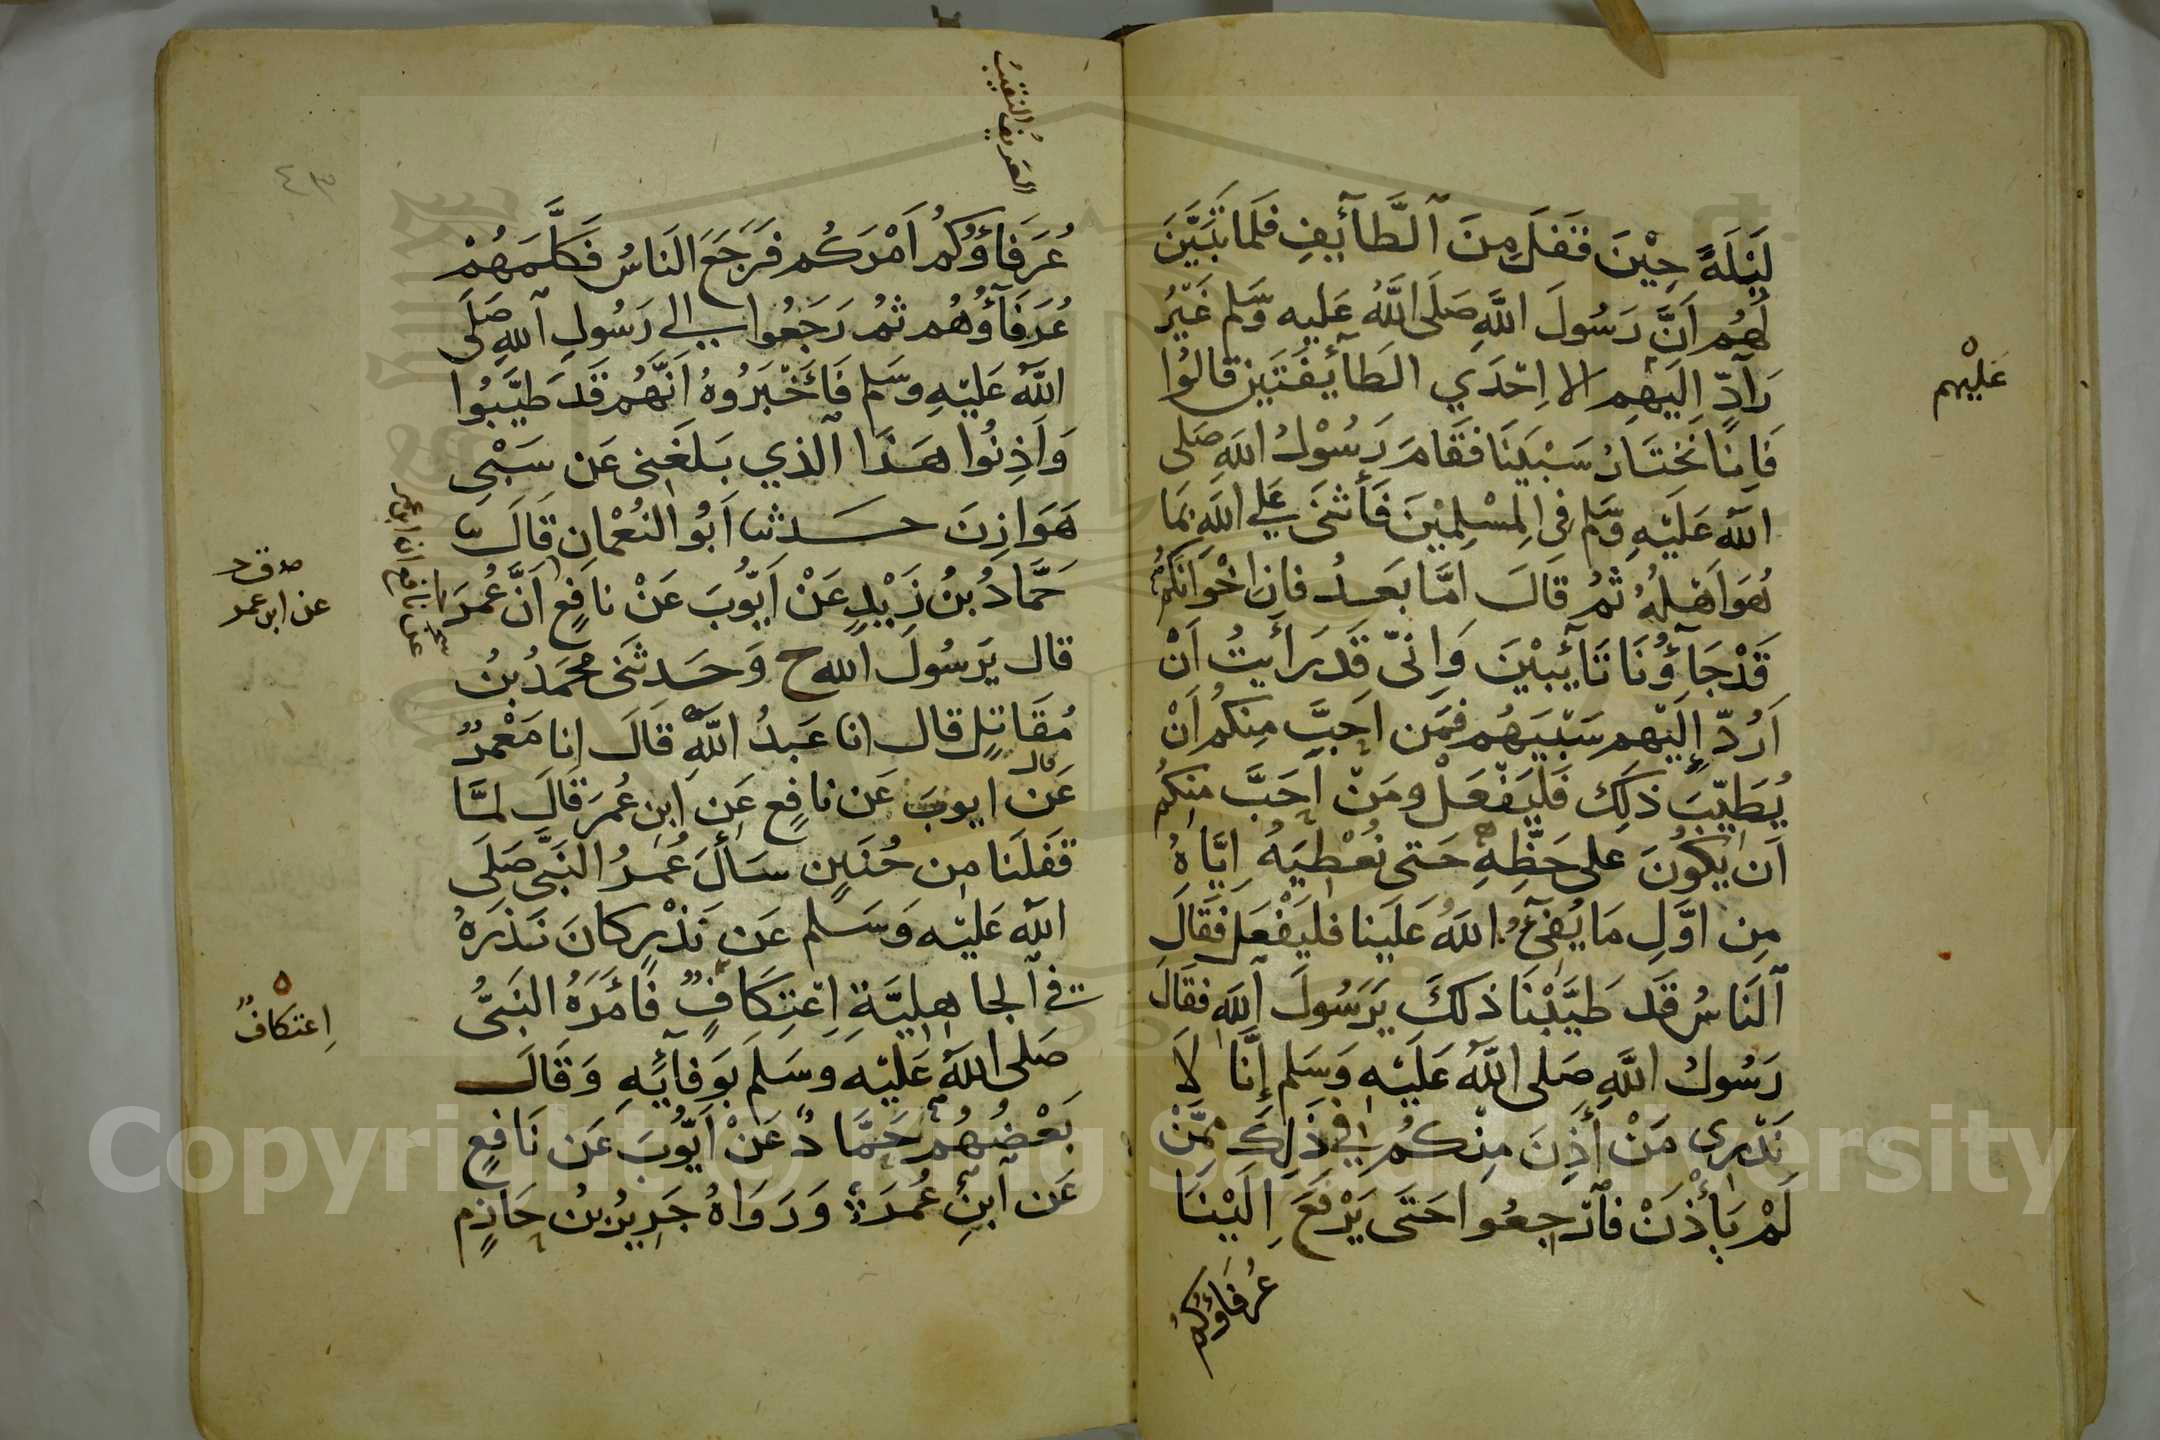 لَيْلَةً حِيْنَ قَفَلَ مِنَ ٱلطَّآئِفِ فَلَمَا تَبَيَّنَ
لَهُم اَنَّ رَسُولَ اللَّهِ صَلَى اللَّهُ عَلَيه وَسَّلم غَيْرُ
رَآدٍّ اِلَيهِم الا اِحْدَي الطَآئِفَتَين قَالُوا
فَاِنَا نَخْتَارُ سَبْيَنَا فَقَامَ رَسُوْلُ اللَهِ صَلى
اللَه عَلَيْهِ وَسَّلم فِى المِسْلِمِيْنَ فَأَثنَى عَلى اللَهِ بمَا
هُوَ اَهْلُهُ ثُمُ قَالَ اَمَّا بَعدُ فاِنَ اِخْوَانَكُمْ
قَدْ جَآؤُنَا تَائِبِيْنَ وَاِنّي قَد رَأَيتُ اَنْ
اَرُدَّ إِلَيْهِم سَبْيَهُم فَمَن اَحَبَّ مِنكُم اَنْ
يُطَيِّبَ ذَلِكَ فَلْيَفْعَلْ ومَنْ اَحَبَّ مِنكُم
اَن يَكُوْنَ عَلى حَظِّهِ حَتى نُعْطِيَهُ اِيَّاهُ
مِن اوَّلِ مَا يُفِيءُ اللهُ عَلَينا فَليَفْعَل فَقَالَ
ٱلنَاسُ قَد طَيَّبْنَا ذَلكَ يَرَسُولَ ٱللَهِ فقَالَ
رَسُولُ اللَّهِ صَلى اللَّهُ عَلَيْهِ وَسَلم إِنَّا لَا
نَدْرِى مَنْ أَذِنَ مِنْكُم فِي ذَلِكَ مِمَّنْ
لَمْ يَأْذَنْ فَٱرْجِعُوا حَتَى يَرْفَعَ اِلَيْنَا
عُرَفَاؤُكُم
عَلَيْهم
العَريفُ النقيبُ
٤٣
عُرَفَاؤُكُم اَمْرَكُم فَرَجَعَ النَاسُ فَكَلَّمَهُمْ
عُرَفَآؤُهُم ثُمُ رَجَعُوا الى رَسُولِ ٱللهِ صَلَى
اللَّهُ عَلَيْهِ وَسَّلم فَأَخْبَرُوهُ اَنَّهُم قَدَ طَيَّبُوا
وَاَذِنُوا هَذَا الَّذي بَلَغَنِى عَن سَبْىِ
هَوَازِنَ حَدثنا اَبُو النُعْمَانِ قَالَ ثنا
حَمَّادُ بنُ زَيْدٍ عَنْ اَيُّوبَ عَنْ نافِعٍ اَنَّ عُمَرَ
قال يَرَسُولَ الله ح وَحَدثَنى مُحَمَدُ بنُ
مُقَاتِلٍ قال انا عَبدُ اللَّهِ قَالَ انا مَعْمَرٌ
عَن ايوبَ عَن نافِعٍ عَن ابنِ عُمَرَ قَالَ لمَّا
قَفَلنَا مِن حُنَينٍ سَأَلَ عُمَرُ النَبيَّ صَلَى
اللَه عَلَيْه وَسَلم عَن نَذْرٍ كَانَ نَذَرَهُ
فى ٱلجاهِلِيَّةِ اِعتِكَافٍ فَأَمَرَهُ النَبىُّ
صَلى اللهُ عَلَيْهِ وَسَلَم بوَفَائِهِ وَقَالَ
بَعْضُهُم حَمَّادٌ عَنْ اَيُّوبَ عَن نَافِعٍ
عَن ٱبنِ عُمَرَ وَرَوَاهُ جَرِيْرُ بنُ حَازِمٍ
عن نافع ان ابن عمر
عن ابن عمر
اِعتكَافٌ
Copyright © King Saud University